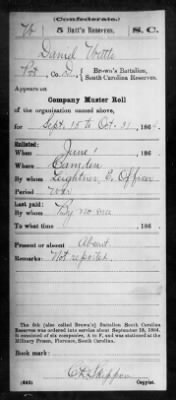 (Confederate.)
5 Batt'n Reserves. S. C.
Daniel Watts
Pvt, Co. D, Brown's Battalion,
South Carolina Reserves.
Appears on
Company Muster Roll
of the organization named above,
for Sept. 15 to Oct. 31, 186
Enlisted:
When June 1, 186
Where Camden
By whom Leightner, E. Officer
Period War
Last paid:
By whom By no one
To what time , 186
Present or absent Absent
Remarks: Not reported
The 5th (also called Brown's) Battalion South Carolina
Reserves was ordered into service about September 15, 1864.
It consisted of six companies, A to F, and was stationed at the
Military Prison, Florence, South Carolina.
Book mark:
Copyist.